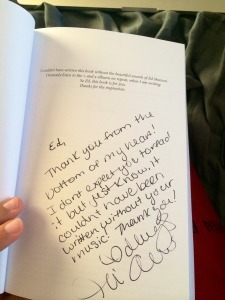 couldn't have written this book without the beautiful sounds of Ed Sheeran.
I listen to the + and x albums on repeat when I am writing.
So Ed, this book is for you.
Thanks for the inspiration.
Ed,
Thank you from the
bottom of my heart!
I dont expect you to read
it but just know, it
couldnt have been
written without your
music! Thank you!